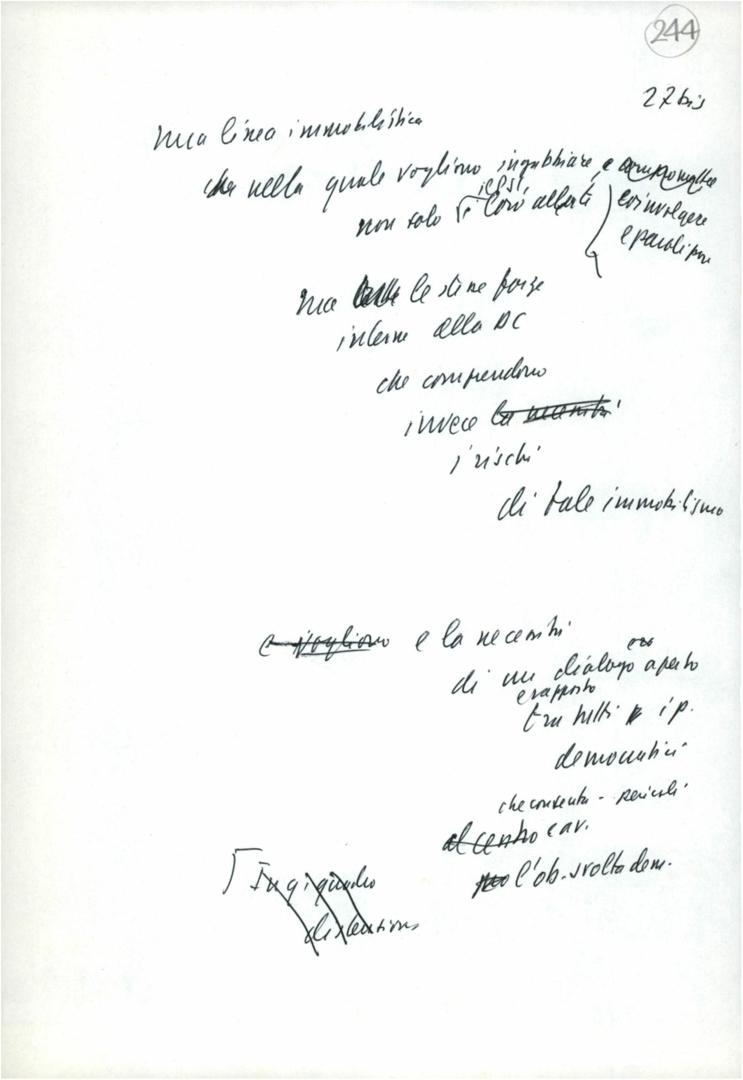 244
27 bis
una linea immobilistica
che nella quale vogliono ingabbiare, e compromettere
il PSI,
non solo i loro alleati coinvolgere
e paralizzare
ma le stesse forze
interne alla DC
che comprendono
invece la necessità
i rischi
di tale immobilismo
e vogliono e la necessità
di un dialogo aperto
e rapporto
tra tutti i p.
democratici
che consenta - pericoli
al centro e av.
l'ob. svolta dem.
In q. quadro
distensione